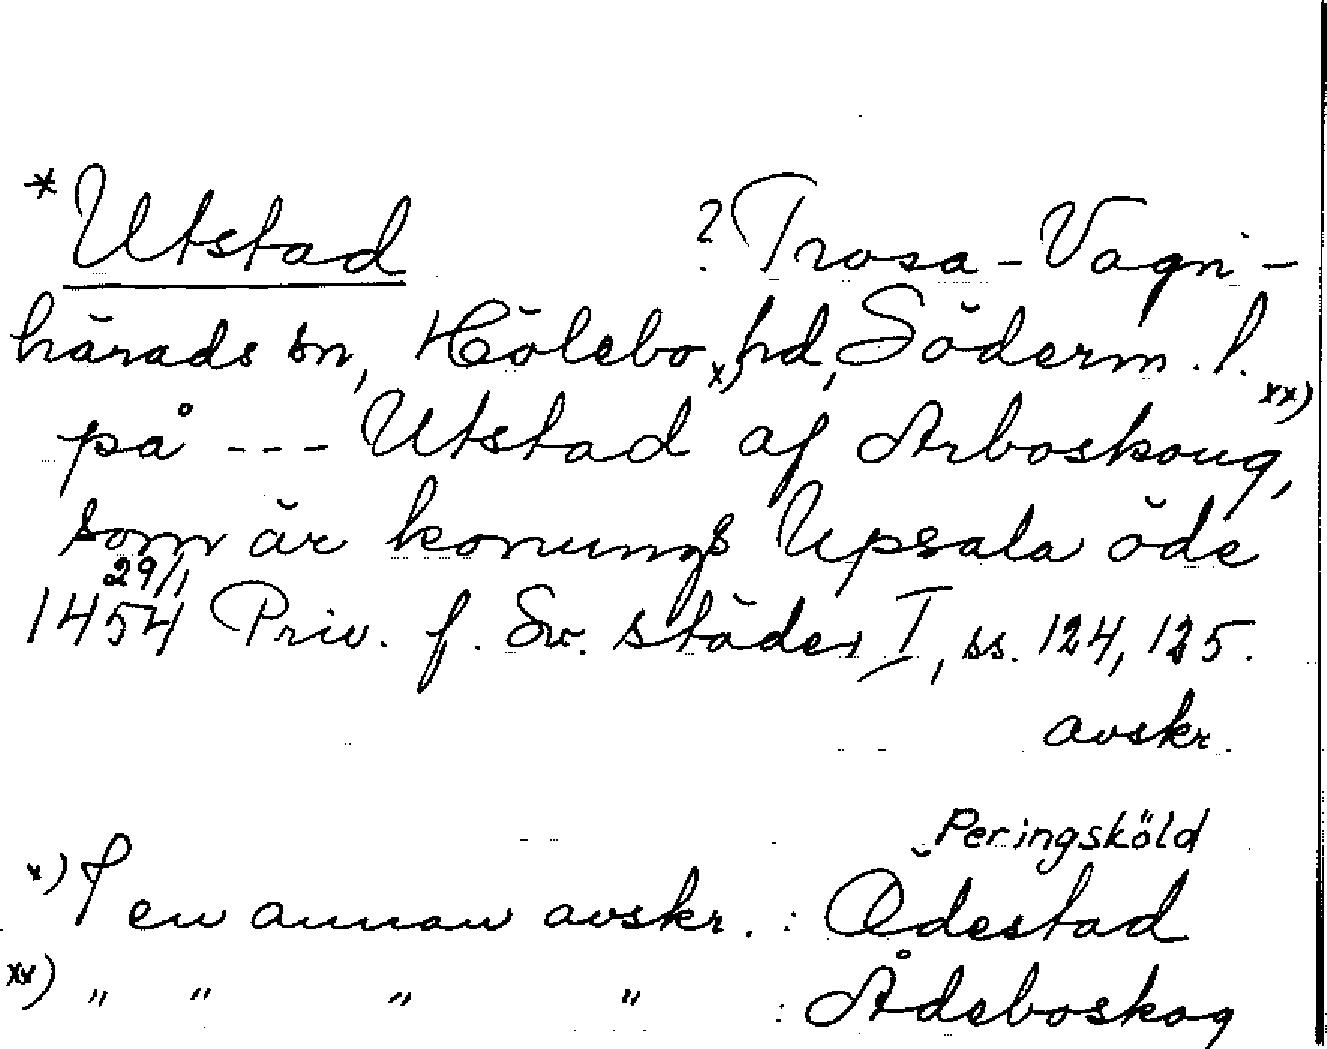 *Utstad ? Trosa-Vagn-
härads sn, Hölebo hd, Söderm. l.
på --- Utstad x) af Arboskoug, xx)
som är konungs Upsala öde
29/1
1454 Priv. f. Sv. städer I, ss. 124, 125.
avskr.
Peringsköld
x) I en annan avskr. : Ödestad
xx) " " " " : Ådeboskog